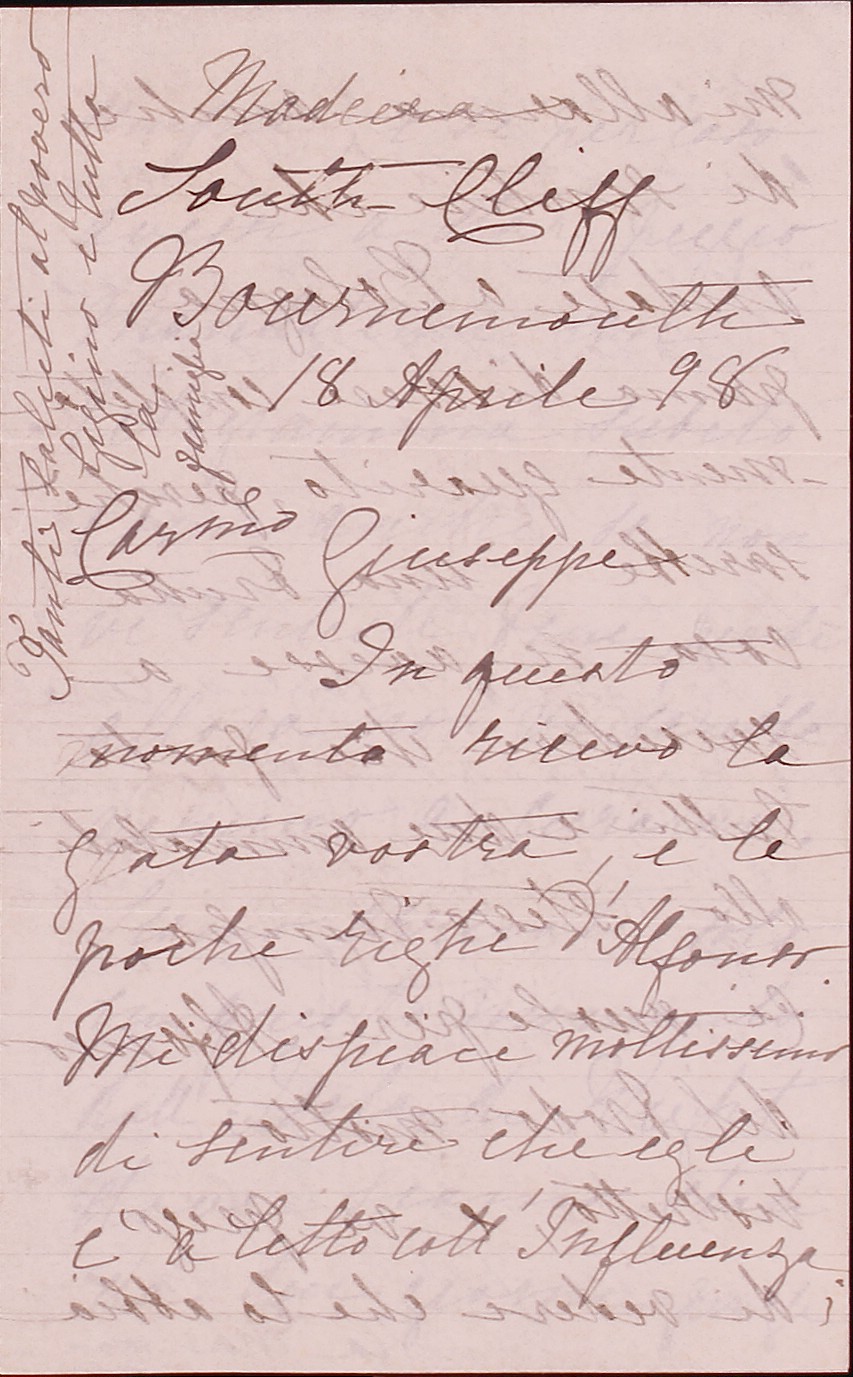 Madeira
South Cliff
Bournemouth
18 Aprile 98
Carmo Giuseppe
In questo
momento ricevo la
grata vostra, e le
poche righe d'Alfonso.
Mi dispiace moltissimo
di sentire che egli
e' a letto coll' Influenza;
Tanti saluti al povero
Gigino e tutta
la
famiglia